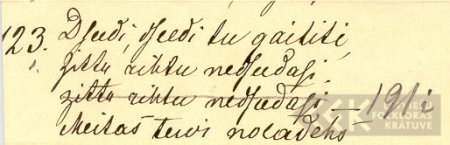 123. Dſeedi, dſeedi tu gailiti,
Zittu rihtu nedſeedaſi.
zittu rihtu nedſeedaſi – 1911
Meitas tewi nolādehs
LATVIEŠU
FOLKLORAS
KRĀTUVE